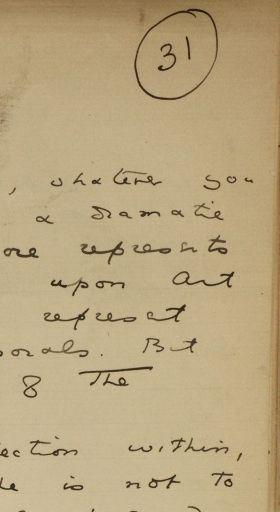 31
, whatever you
a dramatic
ore represents
upon Art
represet
orals. But
8 The
ection within,
le is not to